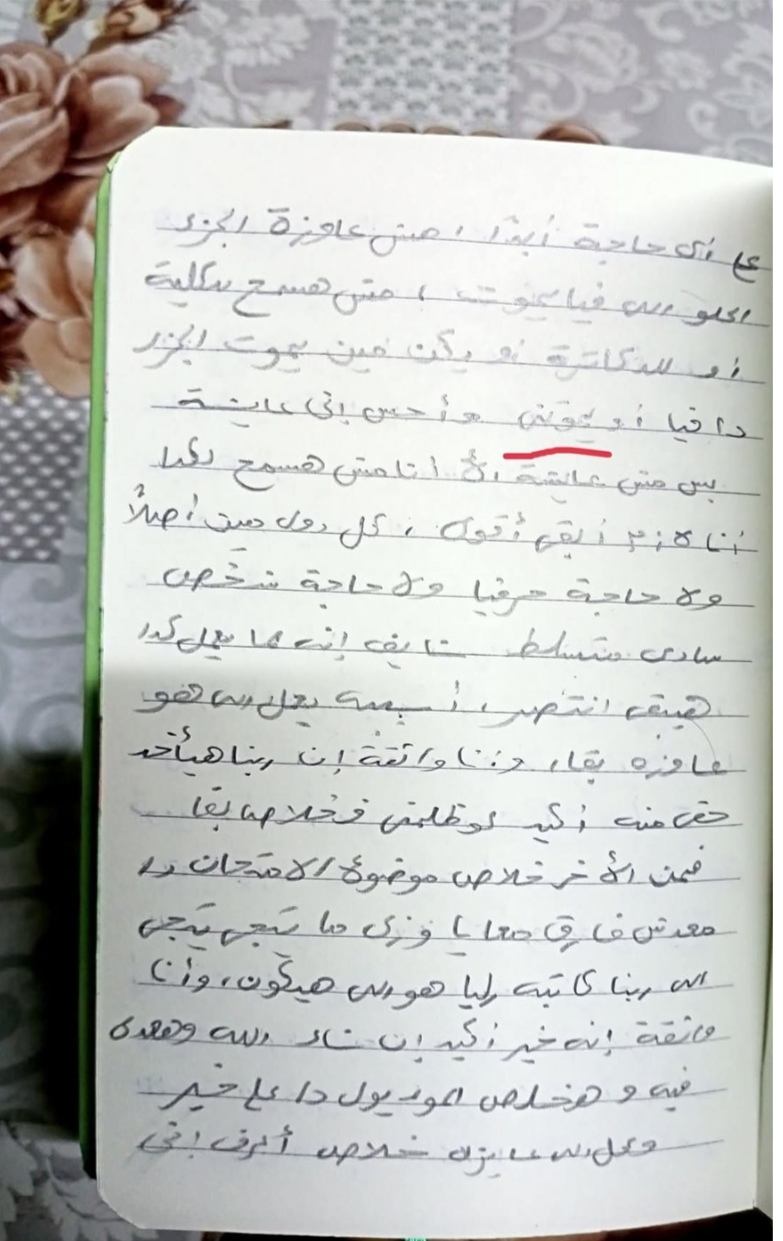 ع أى حاجة أبدًا، مش عاوزة الجزء
الحلو اللى فيا يموت، مش هسمح لكلية
أو للدكاترة نو يكن مين يموت الجزء
دا فيا أو يموتنى وأحس إنى عايشة
بس مش عايشة، لأ أنا مش هسمح بكدا
أنا لازم أبقى أقوى، كل دول مين أصلاً
ولا حاجة حرفيا ولا حاجة شخص
سادى متسلط شايف إنه لما يعمل كدا
هيبقى انتصر، أسيبه يعمل اللى هو
عاوزه بقا، وأنا واثقة إن ربنا هيأخد
حقى منه أكيد لو ظلمنى فخلاص بقا
فمن الأخر خلاص موضوع الامتحان دا
معدش فارق معايا وزى ما تيجى تيجى
اللى ربنا كاتبه ليا هو اللى هيكون، وأنا
واثقة إنه خير أكيد إن شاء الله وهعدى
فيه وهخلص الموديول دا على خير
وعلى عايزاه خلاص أعرف إنى